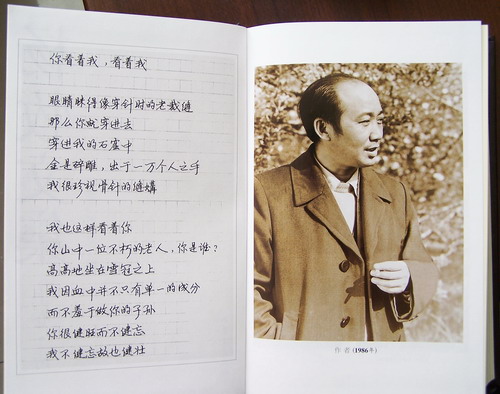 你看着我，看着我
眼睛眯得像穿针时的老裁缝
那么你就穿进去
穿进我的石雾中
全是碎雕，出于一万个人之手
我很珍视骨针的缝补
我也这样看着你
你山中一位不朽的老人，你是谁？
高高地坐在雪冠之上
我因血中并不只有单一的成分
而不羞于做你的子孙
你很健旺而不健忘
我不健忘故也健壮
作者（1986年）